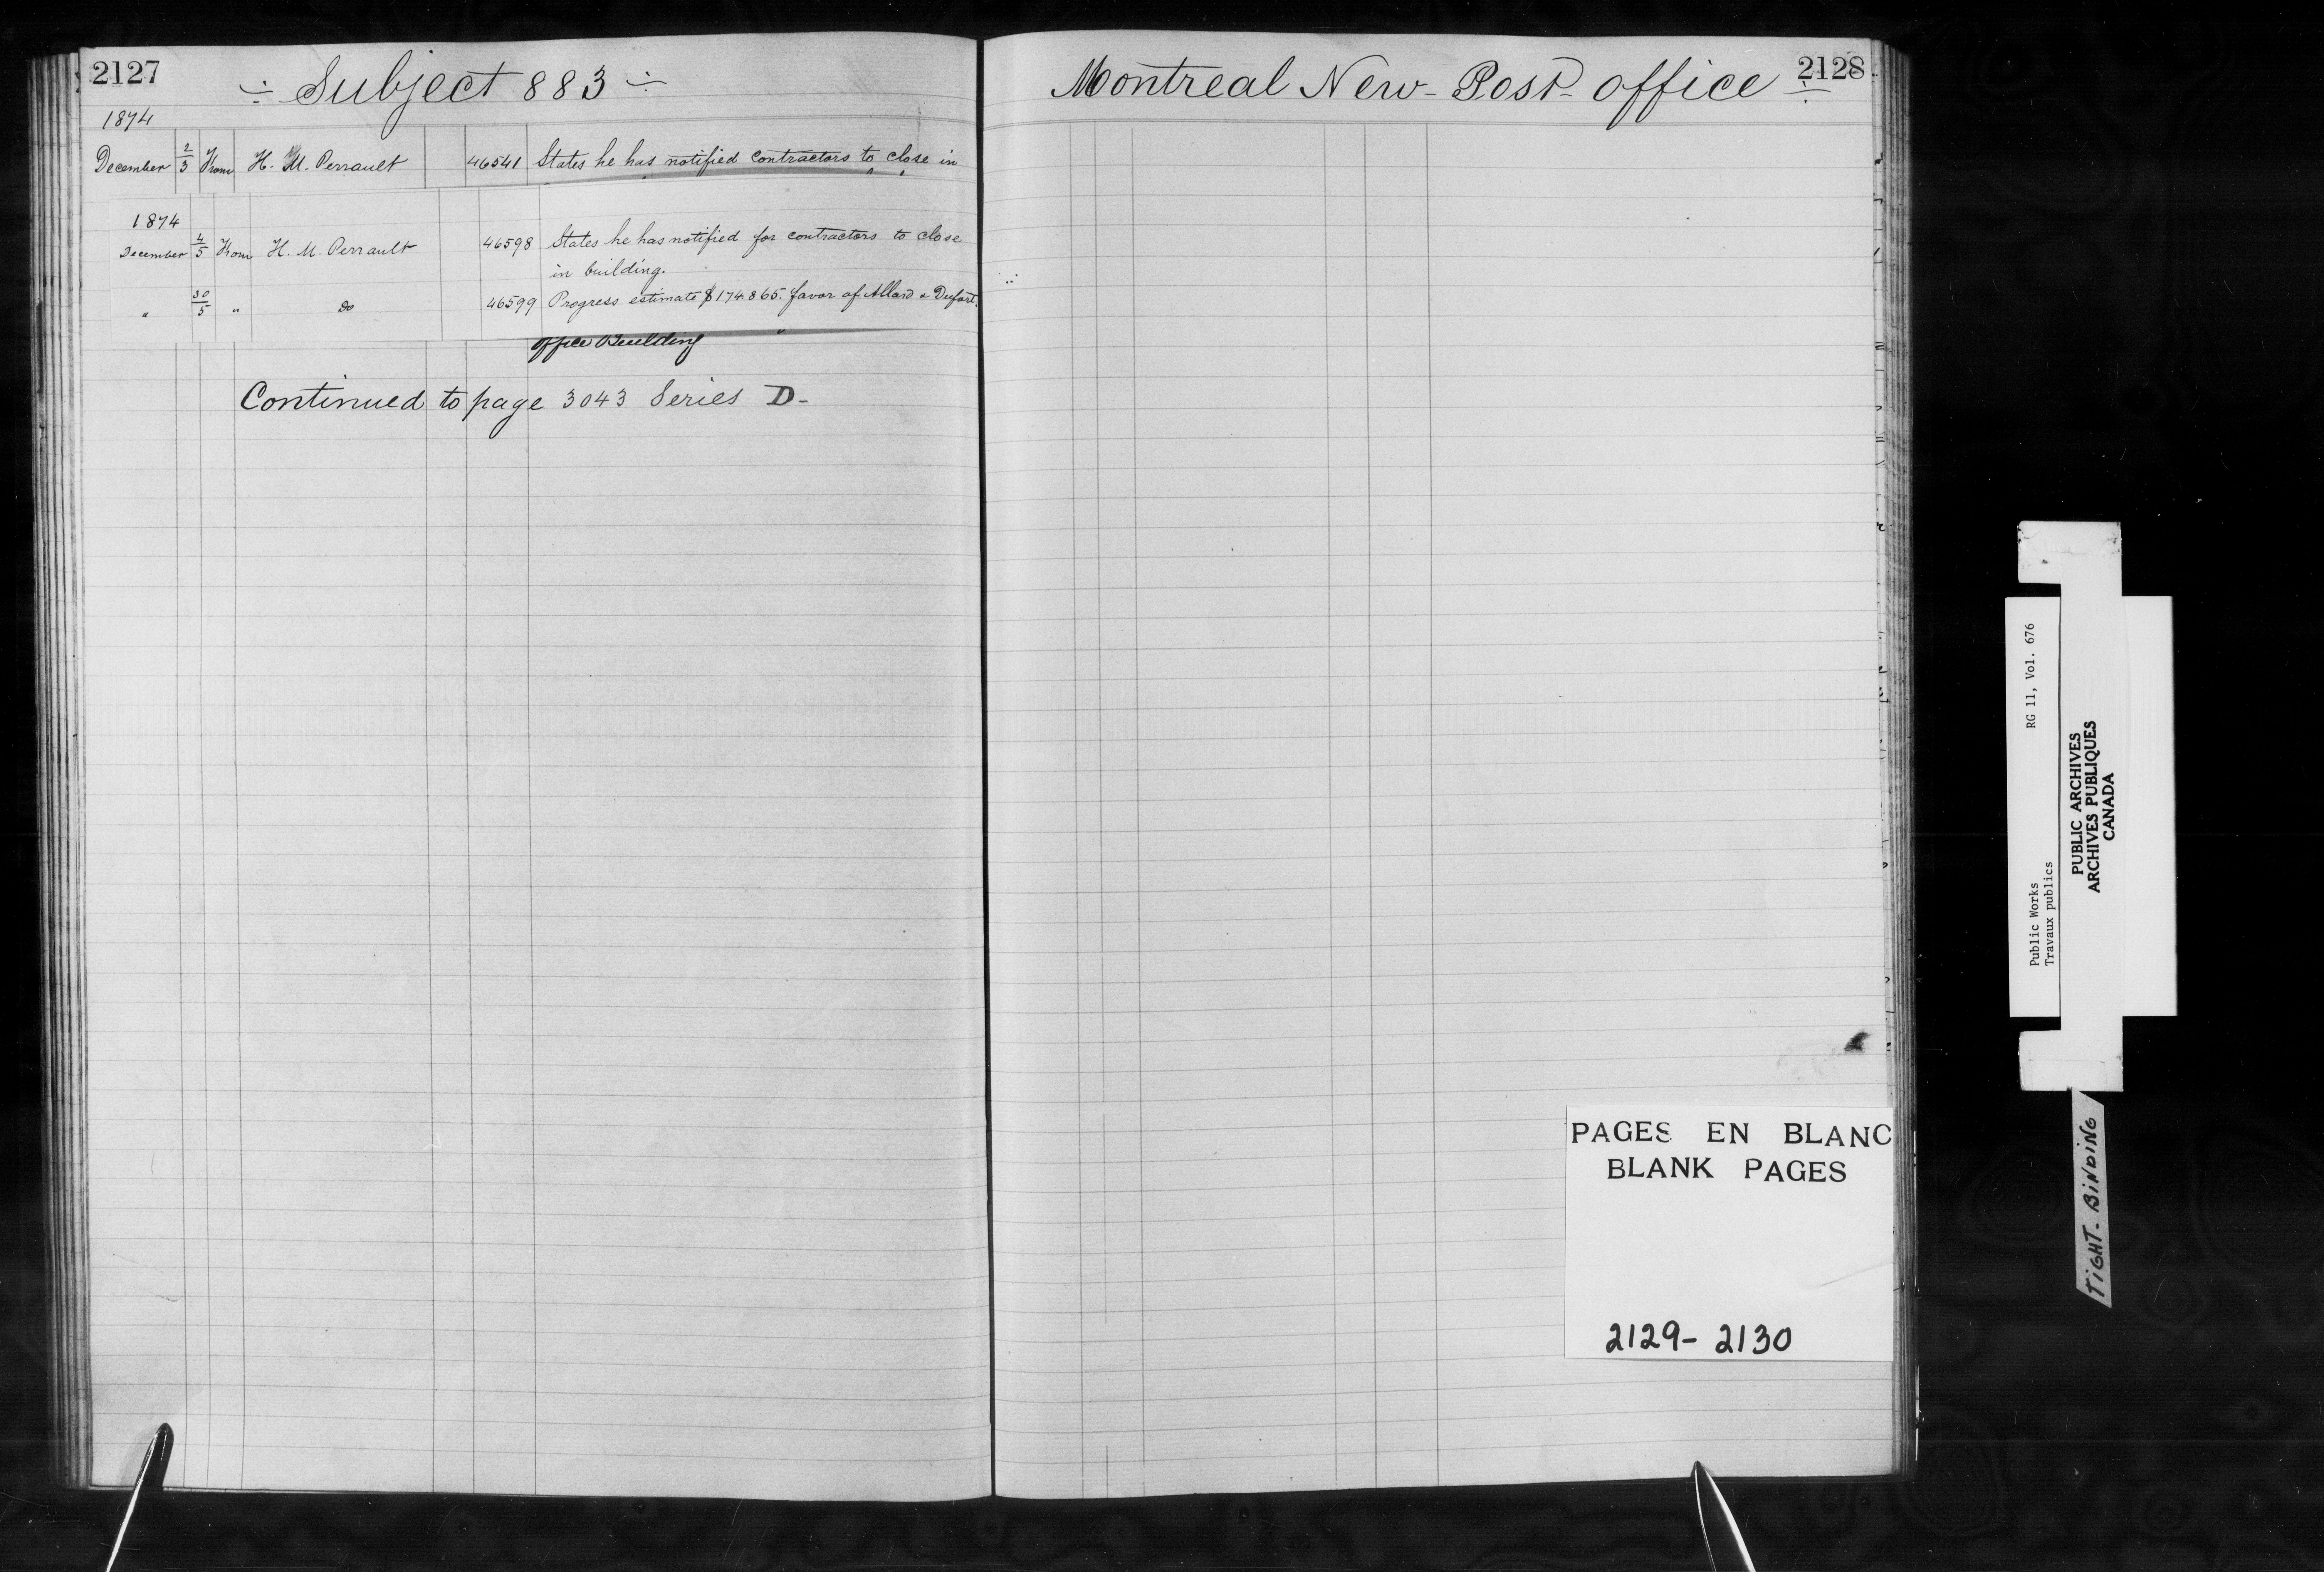 2127
÷ Subject 883 ÷
1874
December 2/3 From H. M. Perrault 46541 States he has notified contractors to close in
1874
December 4/5 From H. M. Perrault 46598 States he has notified for contractors to close
in building.
" 30/5 " Do 46599 Progress estimate $174.865. favor of Allard & Dufort.
office Building
Continued to page 3043 Series D-
2128
Montreal New-Post-office ÷
PAGES EN BLANC
BLANK PAGES
2129-2130
Public Works RG 11, Vol. 676
Travaux publics
PUBLIC ARCHIVES
ARCHIVES PUBLIQUES
CANADA
TIGHT-BINDING